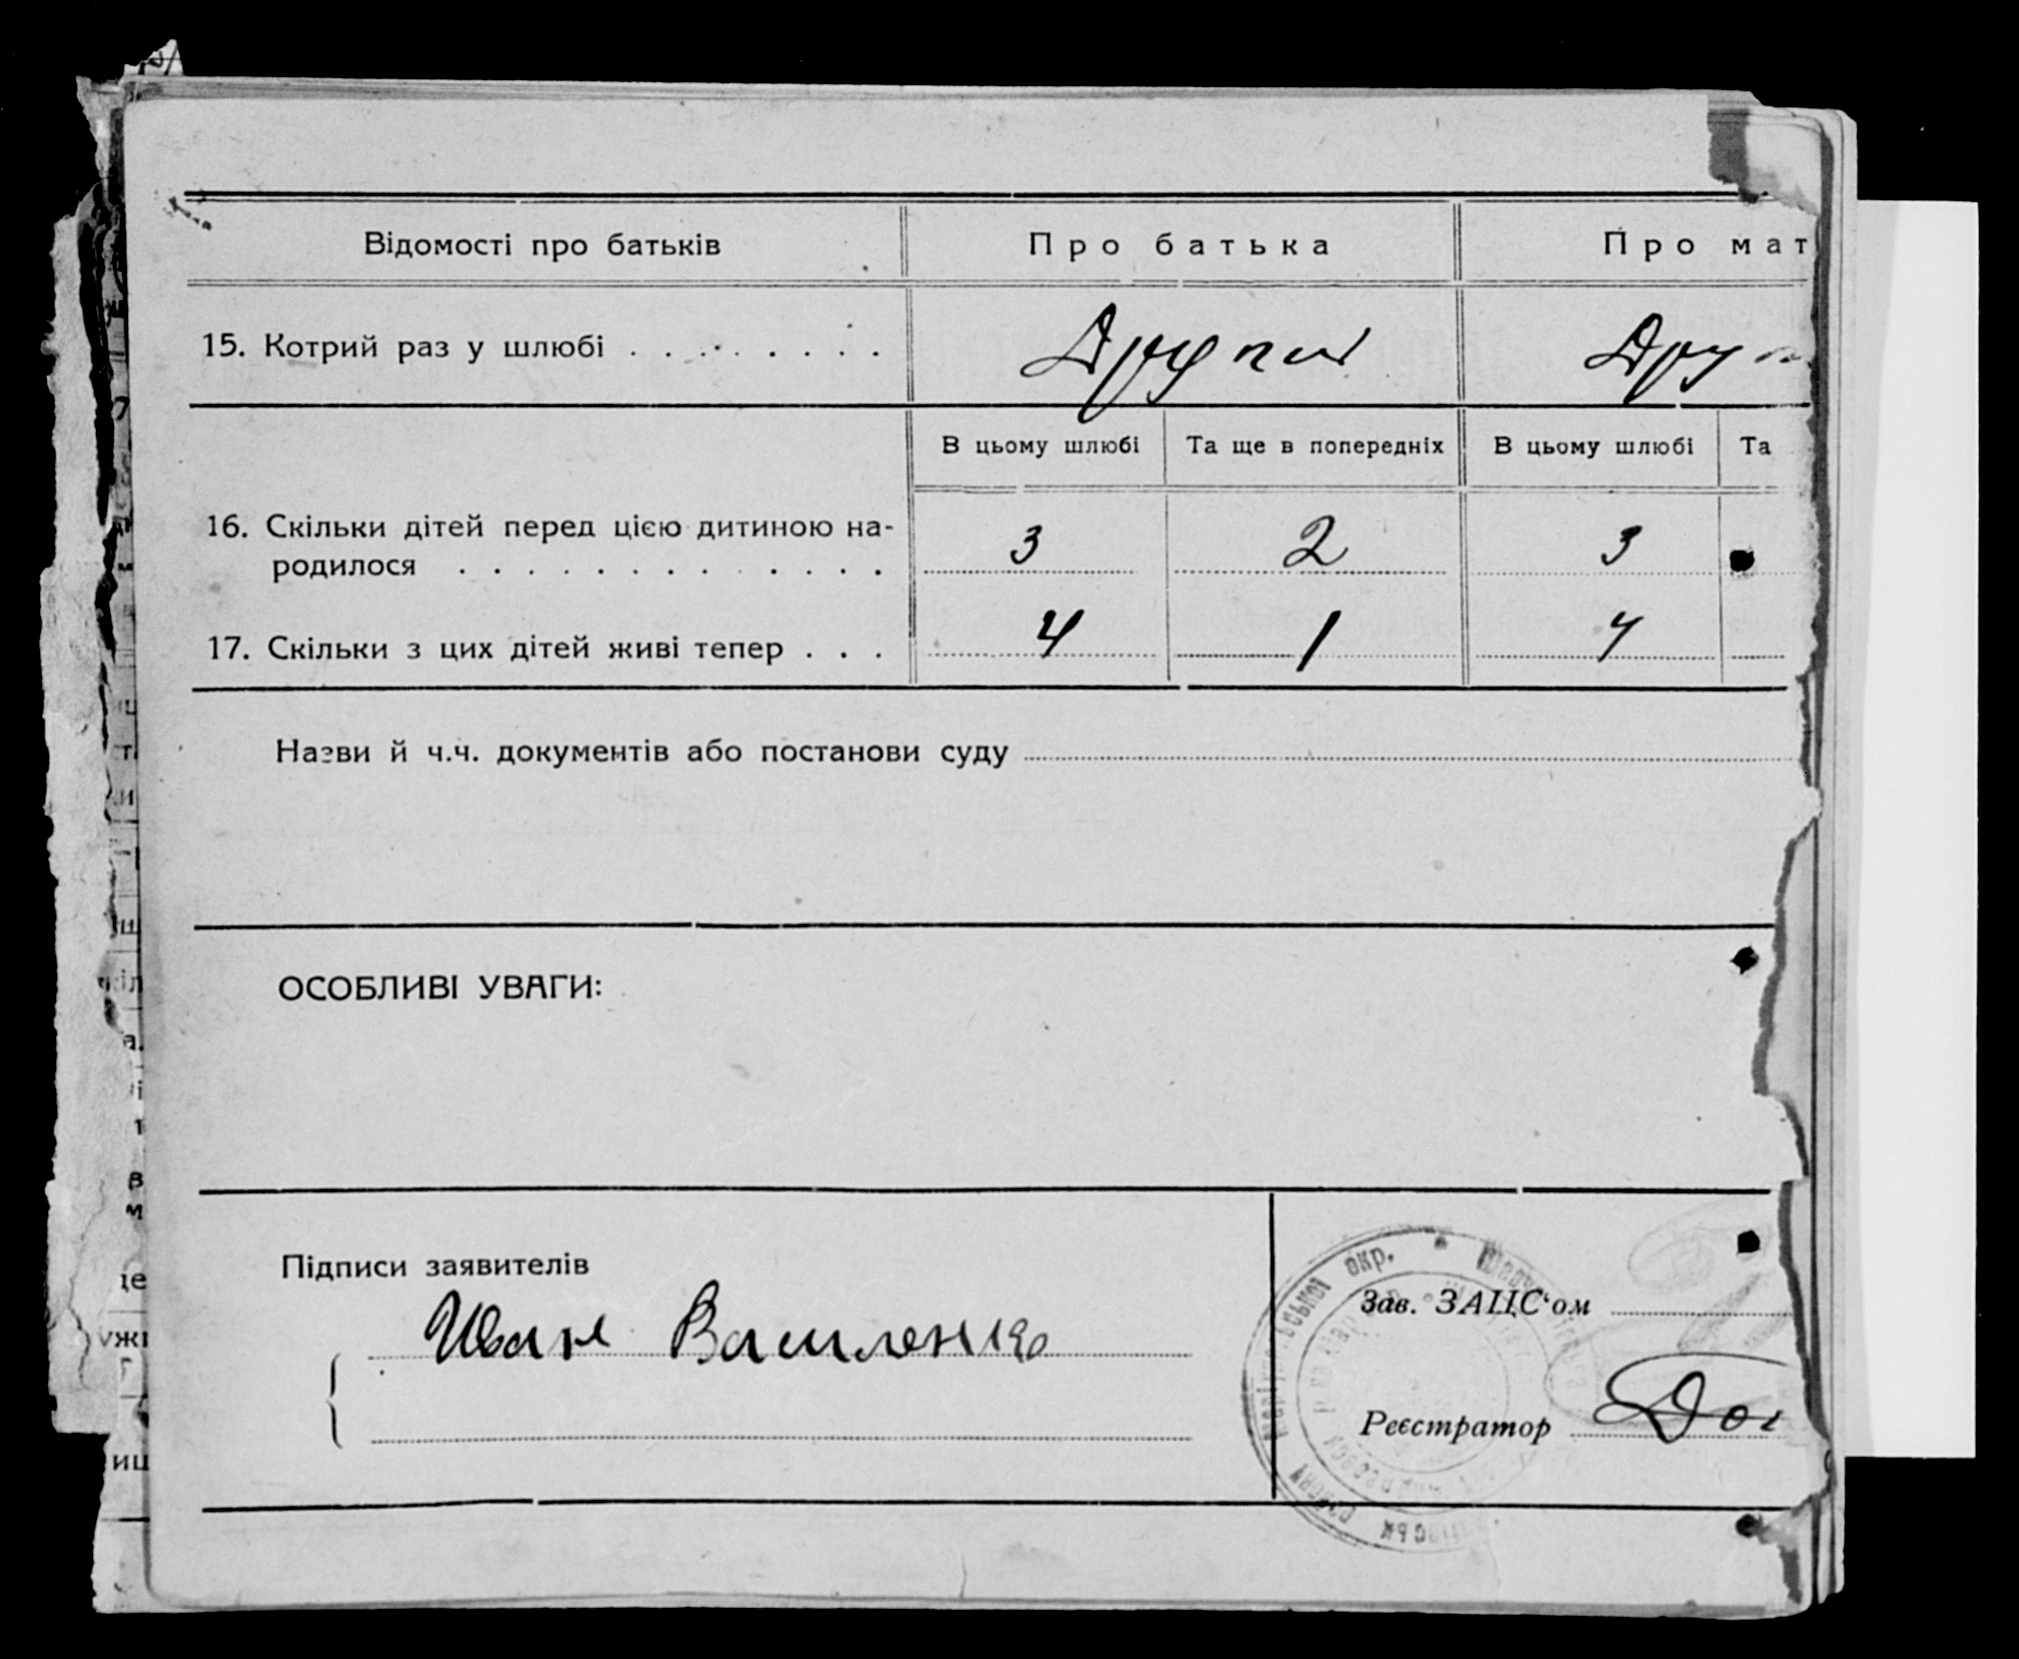 Відомості про батьків
Про батька
Про мат
15. Котрий раз у шлюбі . . . . . . . . .
Другий
Друг
В цьому шлюбі
Та ще в попередніх
В цьому шлюбі
Та
16. Скільки дітей перед цією дитиною на-
родилося . . . . . . . . . . . . .
3
2
3
17. Скільки з цих дітей живі тепер . . .
4
1
4
Назви й ч.ч. документів або постанови суду
ОСОБЛИВІ УВАГИ:
Підписи заявителів
Иван Василенко
окр.
Зав. ЗАЦС'ом
Реєстратор